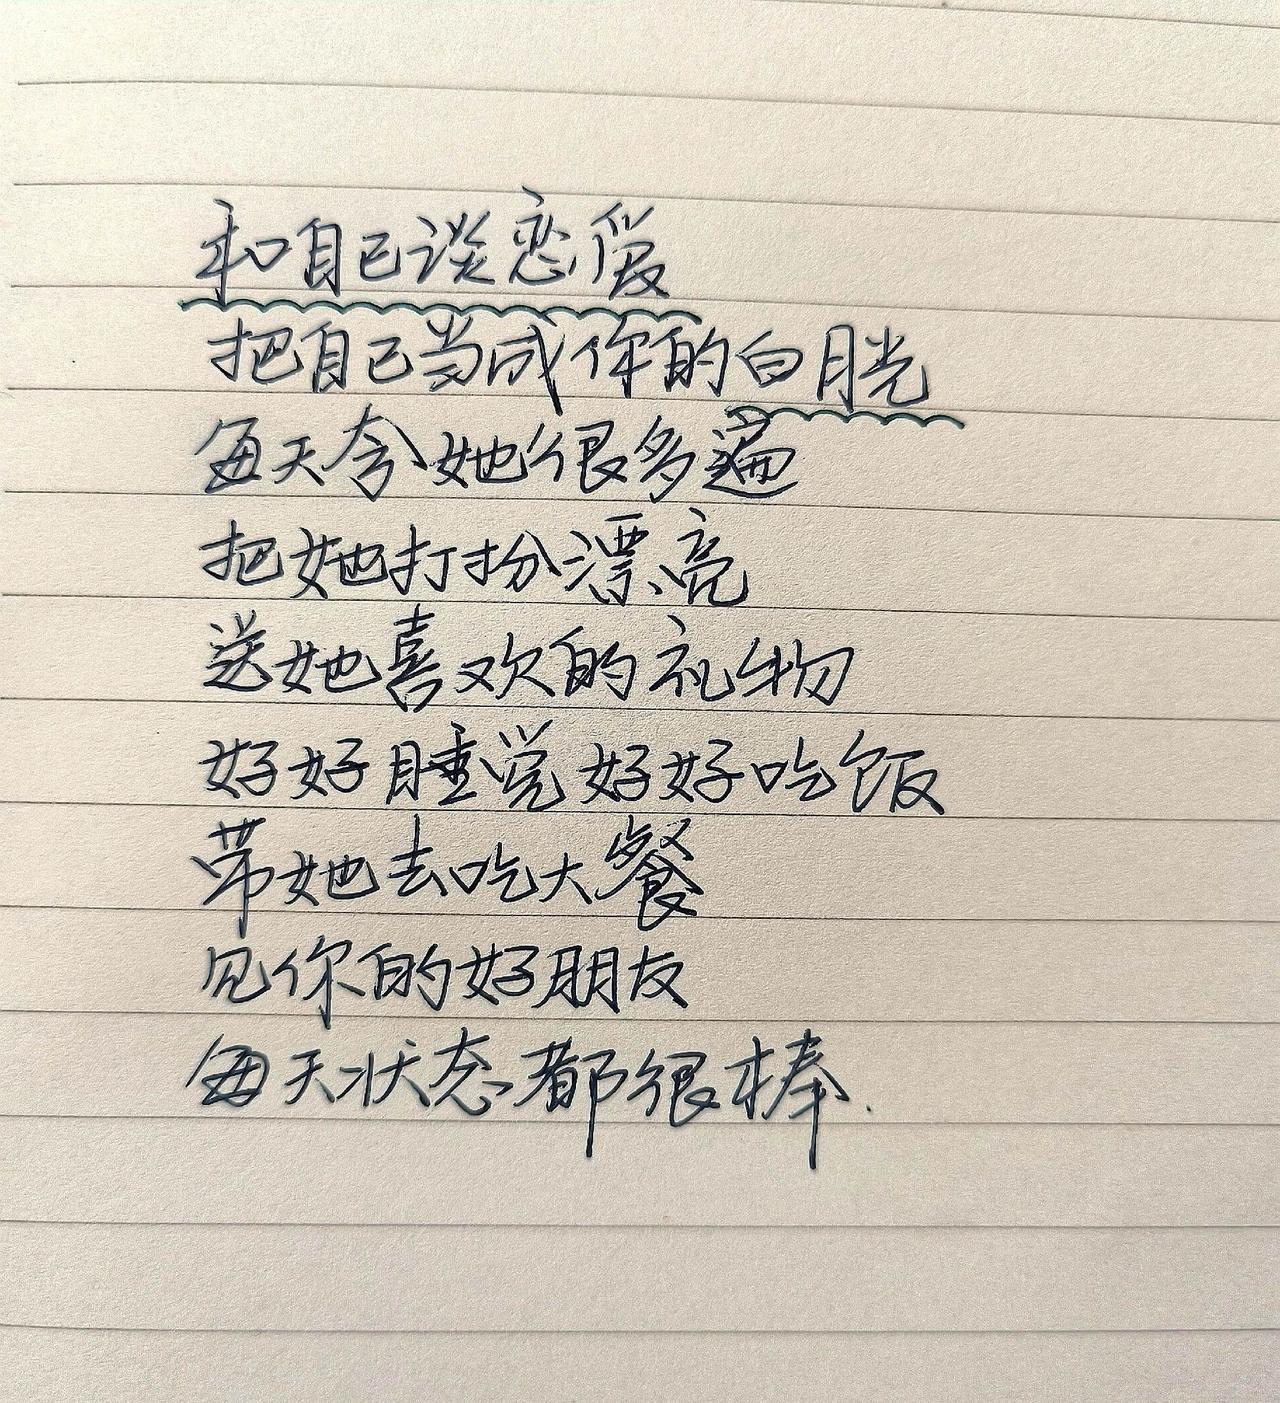 和自己谈恋爱
把自己当成你的白月光
每天夸她很多遍
把她打扮漂亮
送她喜欢的礼物
好好睡觉好好吃饭
带她去吃大餐
见你的好朋友
每天状态都很棒.